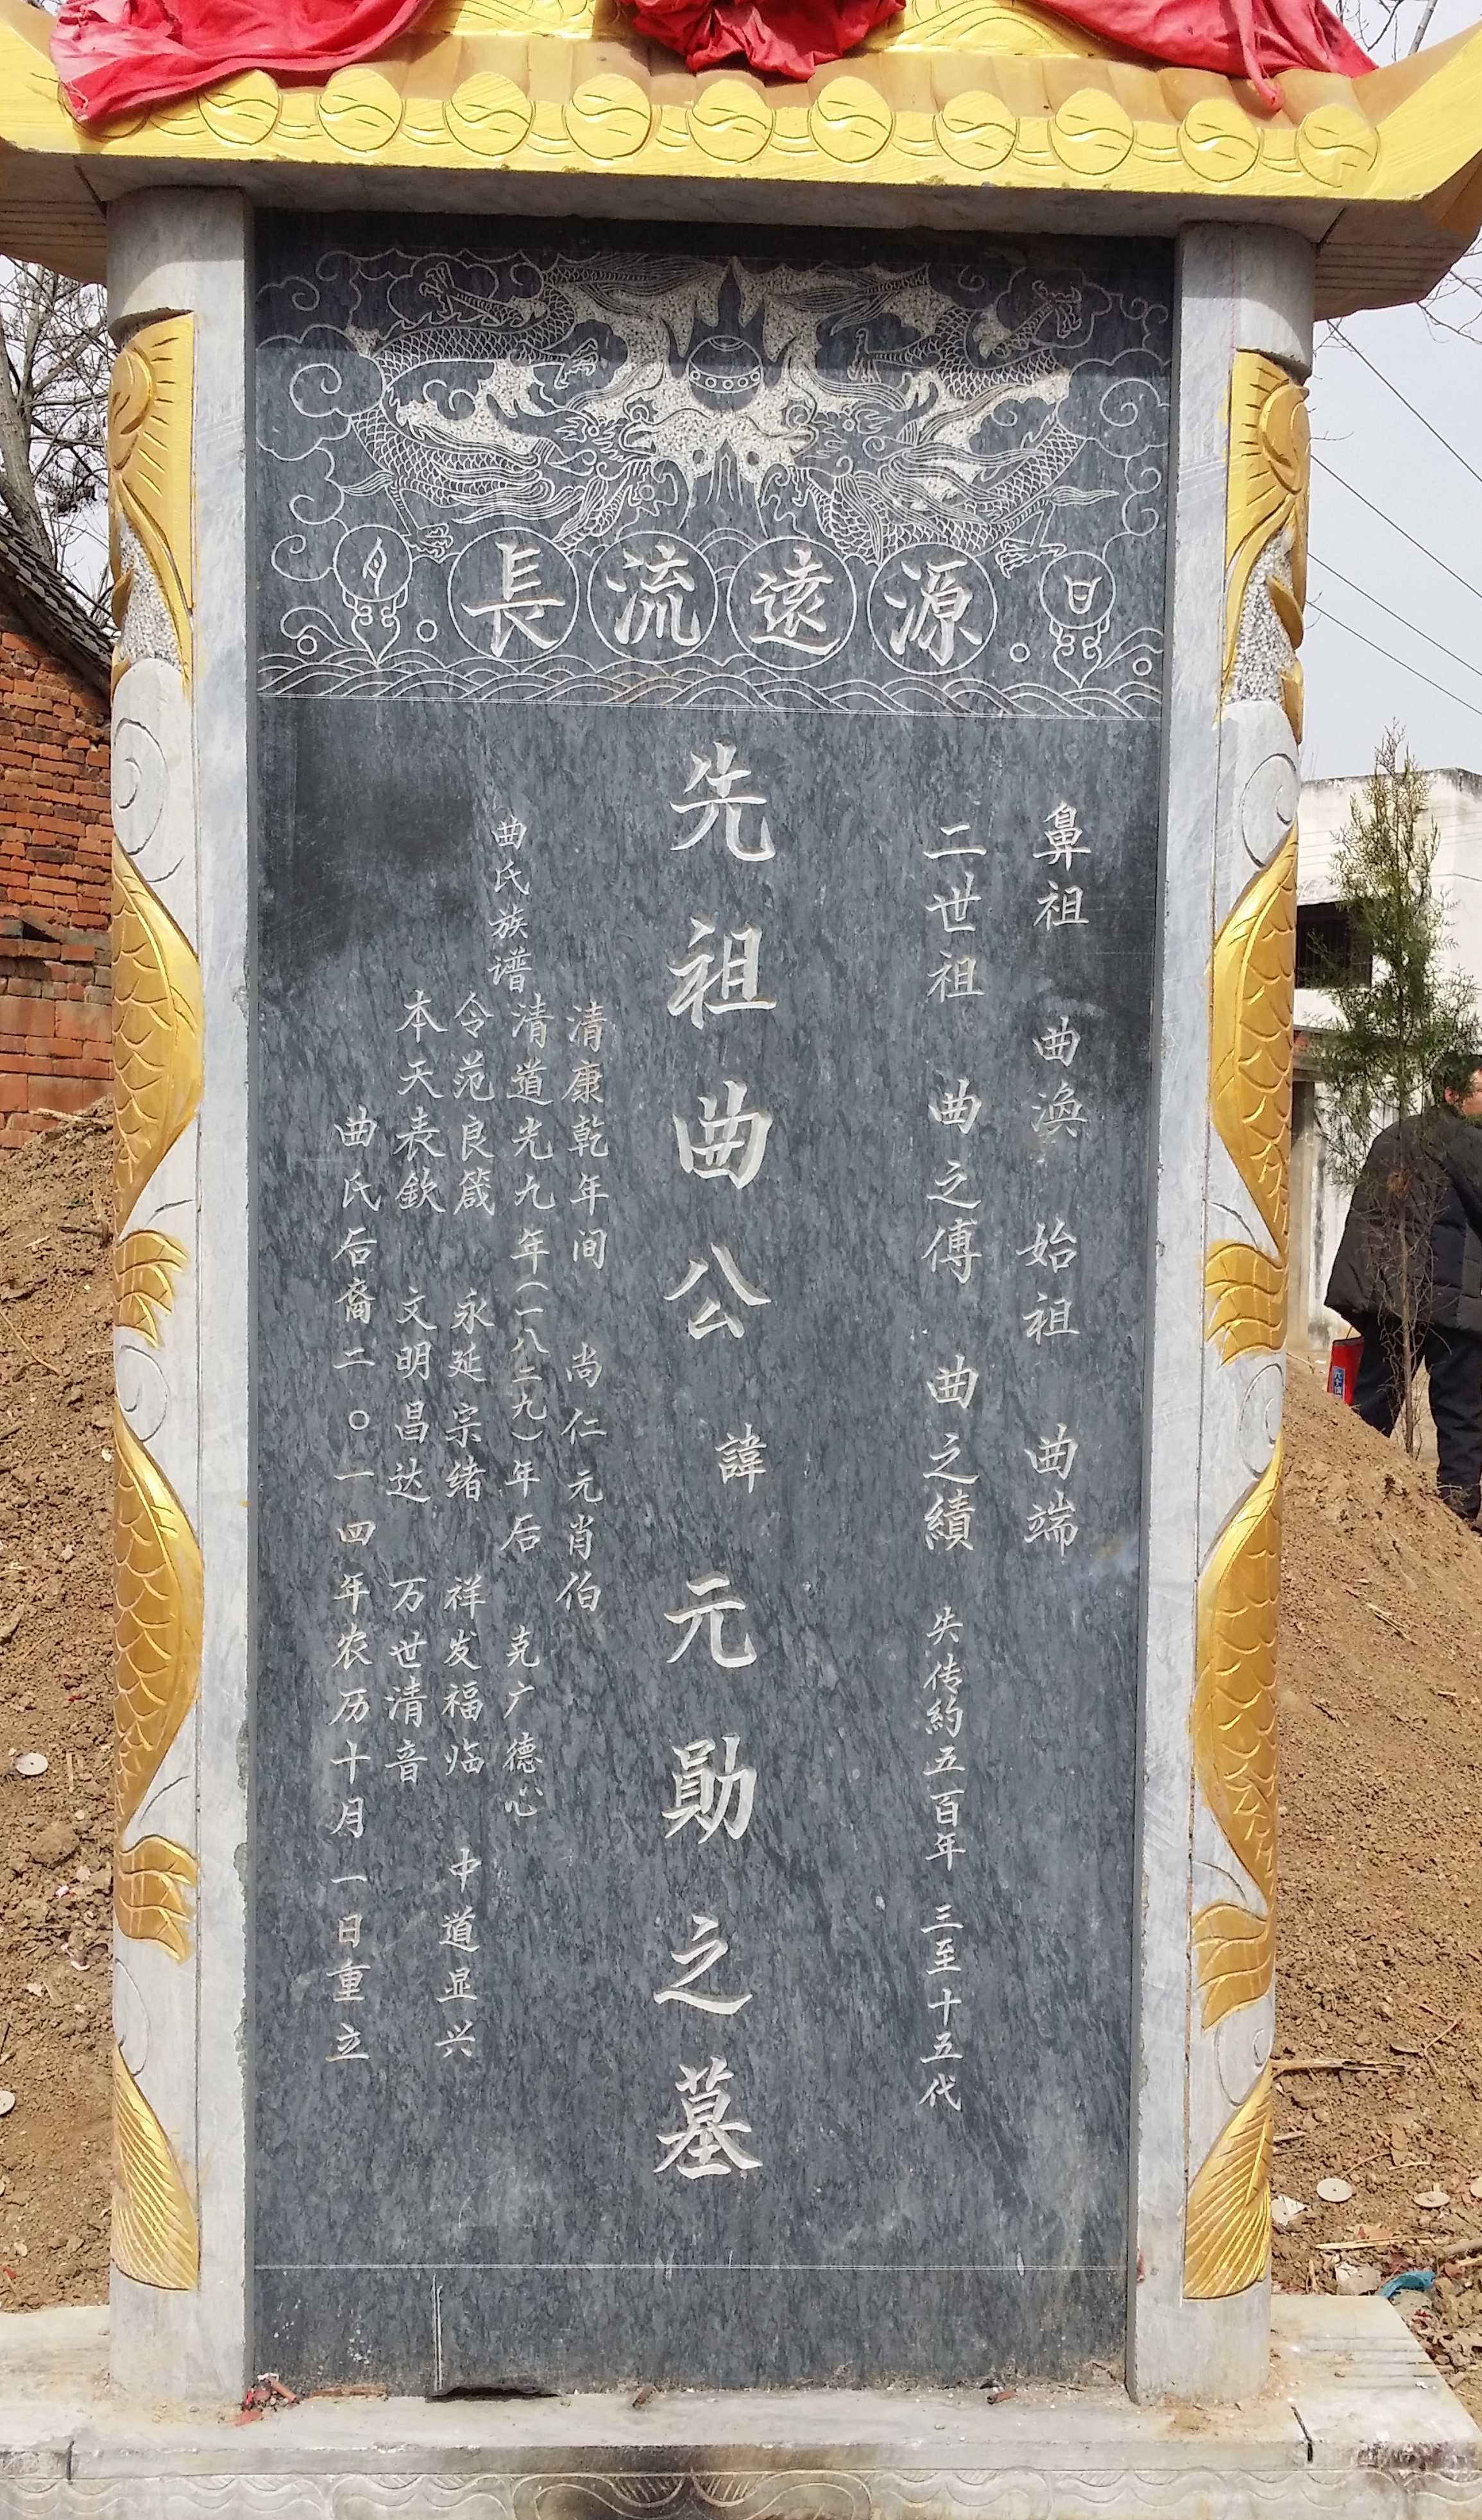 日 源遠流長 月
鼻祖 曲渙 始祖 曲端
二世祖 曲之傅 曲之績 失传約五百年 三至十五代
先祖曲公諱元勛之墓
清康乾年间 尚仁元肖伯
曲氏族谱
清道光九年(一八二九)年后 克广德心
令范良箴 永延宗绪 祥发福临 中道显兴
本天表欽 文明昌达 万世清音
曲氏后裔二〇一四年农历十月一日重立